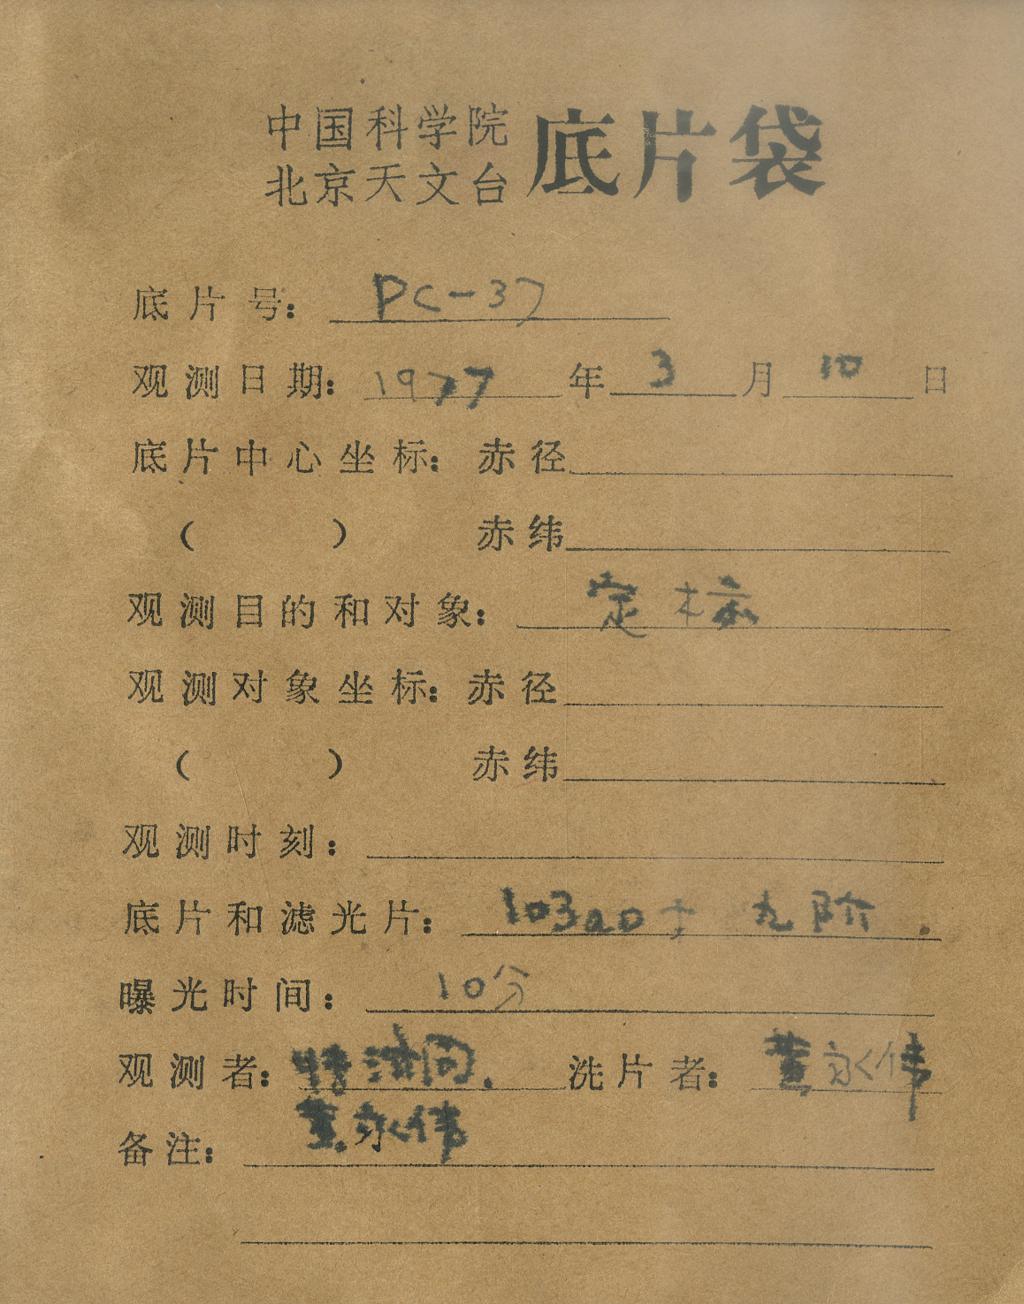 中国科学院
北京天文台 底片袋
底片号: PC-37
观测日期: 1977年3月10日
底片中心坐标: 赤径
( ) 赤纬
观测目的和对象: 定标
观测对象坐标: 赤径
( ) 赤纬
观测时刻:
底片和滤光片: 103aO+ 九阶.
曝光时间: 10分
观测者: 洗片者: 董永伟
董永伟
备注: